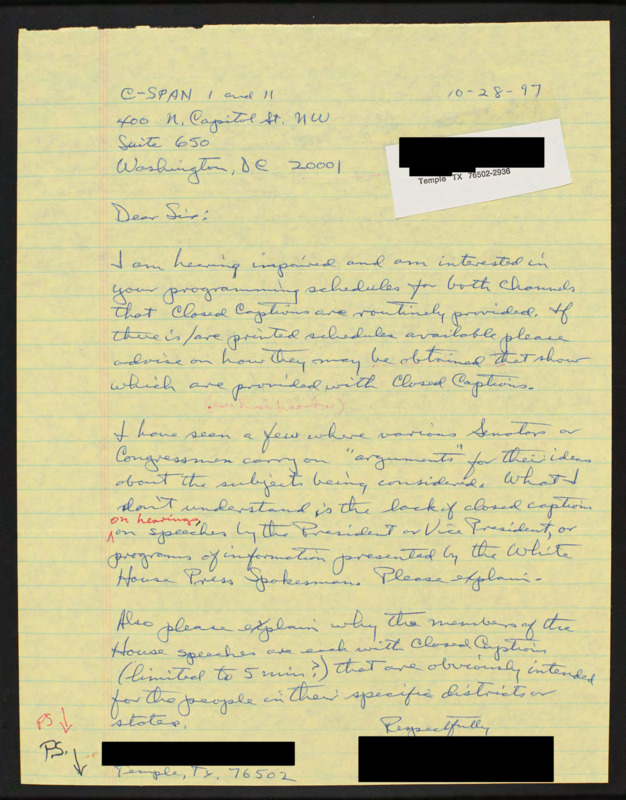 C-SPAN I and II
10-28-97
400 N. Capitol St. NW
Suite 650
Washington, DC 20001
Temple TX 76502-2936
Dear Sir:
I am hearing impaired and am interested in
your programming schedules for both channels
that Closed Captions are routinely provided. If
there is/are printed schedules available please
advise on how they may be obtained that show
which are provided with Closed Captions.
I have seen a few where various Senators or
Congressmen carry on "arguments" for their ideas
about the subjects being considered. What I
don't understand is the lack of closed captions
on hearings,
on speeches by the President or Vice President, or
programs of information presented by the White
House Press Spokesman. Please explain.
Also please explain why the members of the
House speeches are each with Closed Captions
(limited to 5 min?) that are obviously intended
for the people in their specific districts or
states.
Respectfully
PS
P.S.
Temple, Tx. 76502